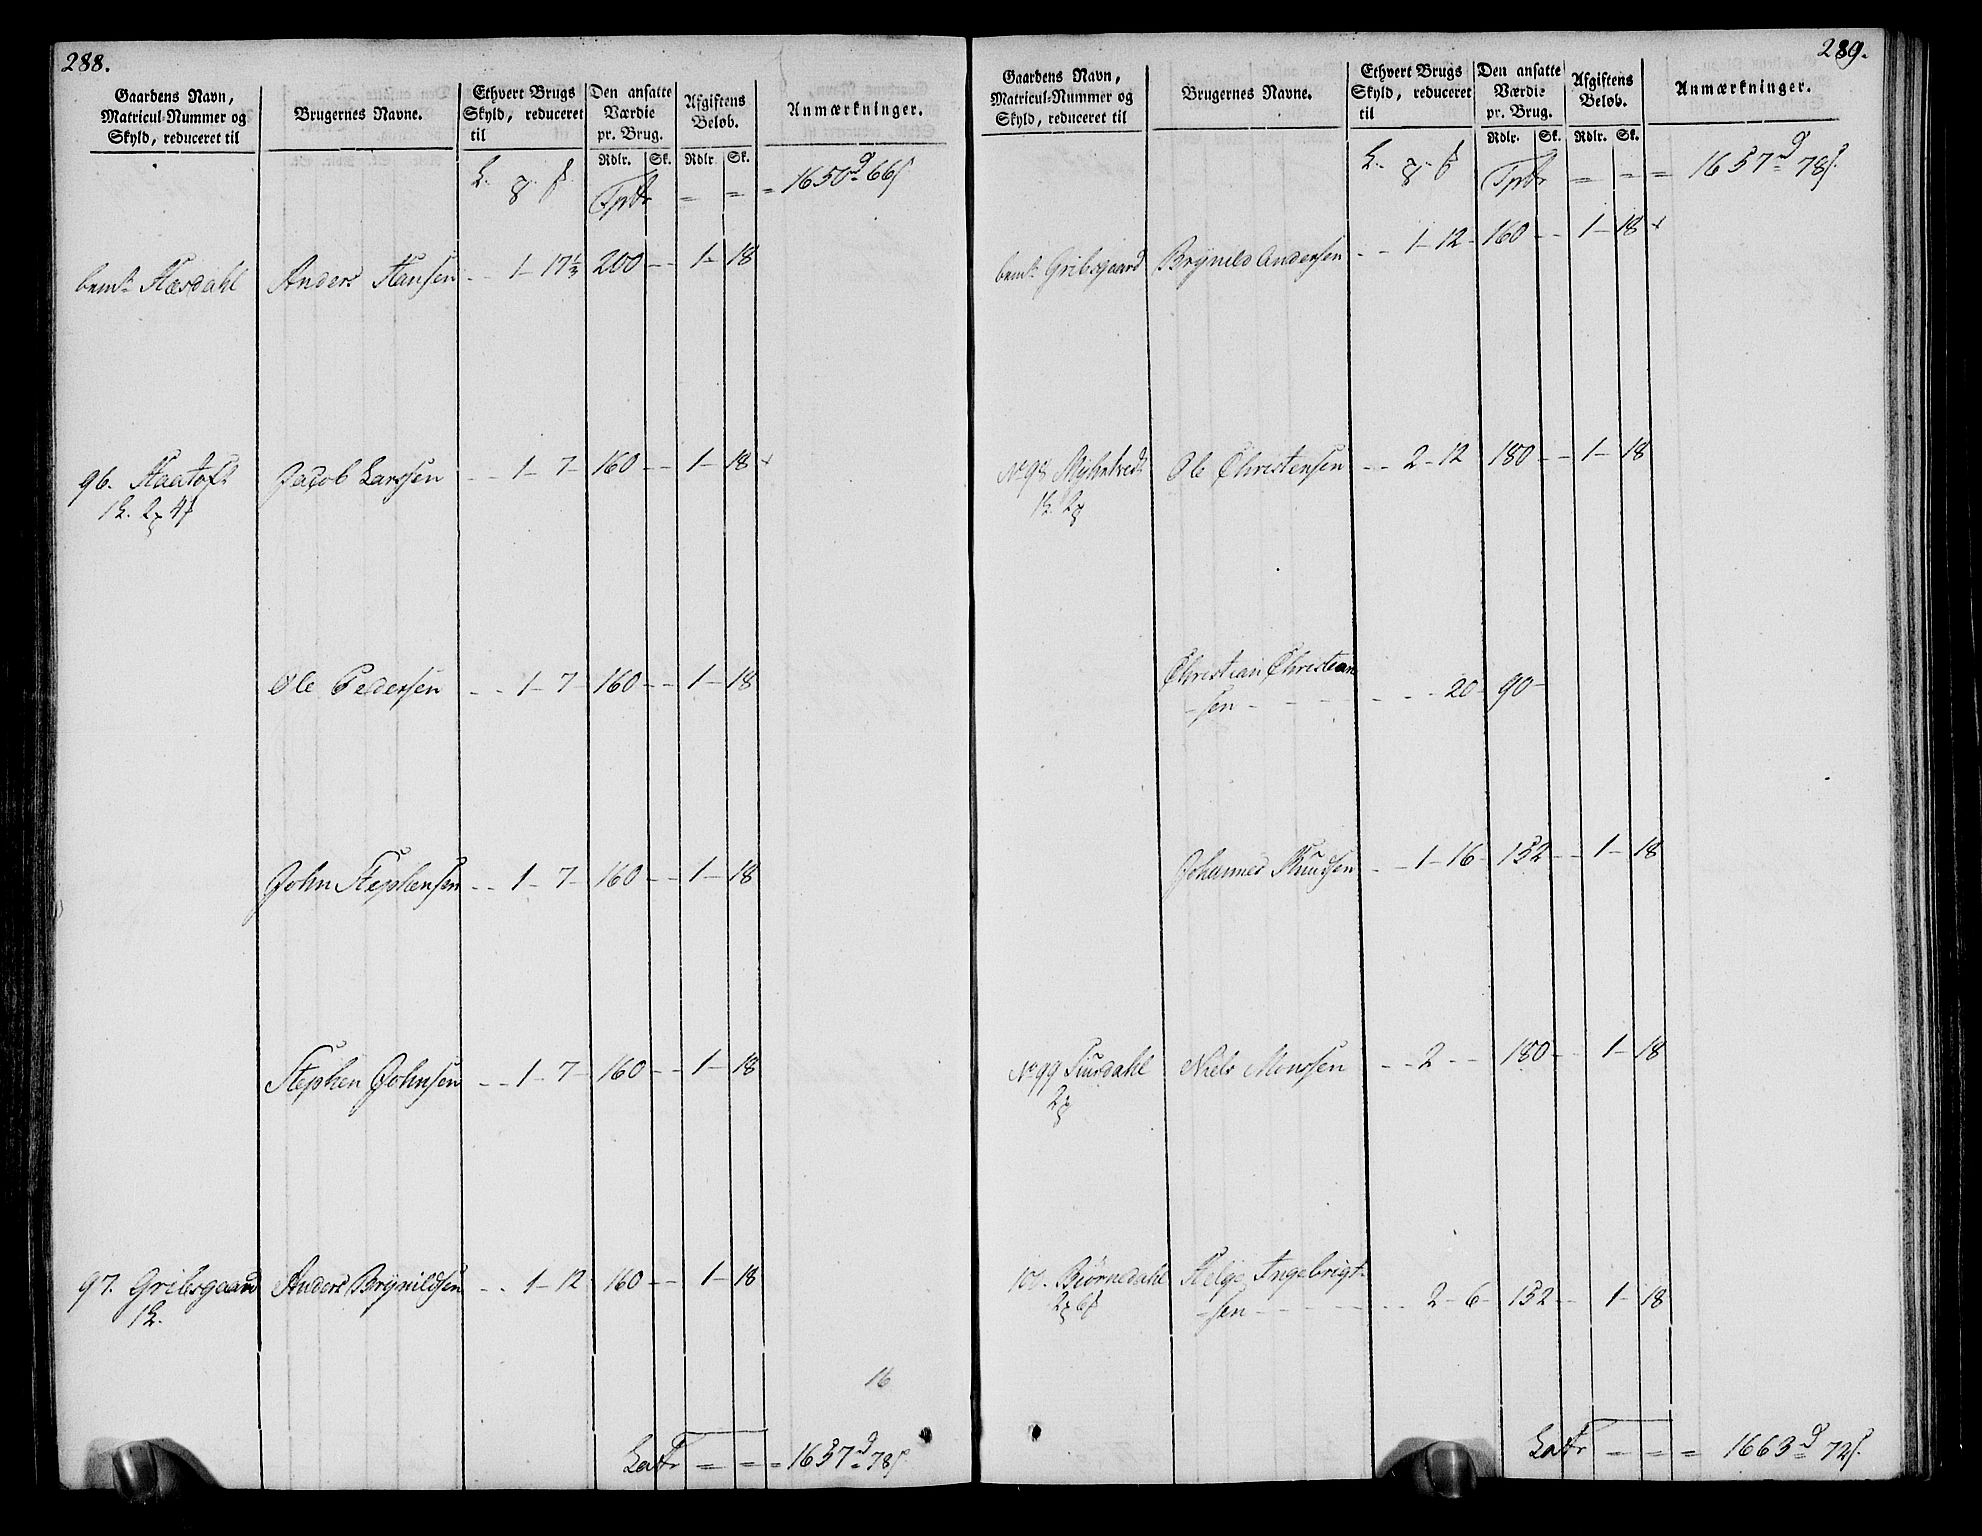 288.
Gaardens Navn,
Matricul-Nummer og
Skyld, reduceret til
Brugernes Navne.
Ethvert Brugs
Skyld, reduceret
til
Den ansatte
Værdie
pr. Brug.
Rdlr. Sk.
Afgiftens
Beløb.
Rdlr. Sk.
Anmærkninger.
Tptr = = = 1650 d 66 s
bemte Hæsdahl Anders Hansen - 1 - 17 1/3 200 - - 1 - 18
96. Haatoft Jacob Larssen - - 1 - 7 - 160 - - 1 - 18 +
1 L. 2 8 4 f
Ole Pedersen - - 1 - 7 - 160 - - 1 - 18
John Stephensen - - 1 - 7 - 160 - - 1 - 18
Stephen Johnsen - - 1 - 7 - 160 - - 1 - 18
97. Gribsgaard Anders Brynildsen - - 1 - 12 160 - - 1 - 18
1 L.
16
Latr = = = 1657 d 78 s
289.
Gaardens Navn,
Matricul-Nummer og
Skyld, reduceret til
Brugernes Navne.
Ethvert Brugs
Skyld, reduceret
til
Den ansatte
Værdie
pr. Brug.
Rdlr. Sk.
Afgiftens
Beløb.
Rdlr. Sk.
Anmærkninger.
Tptr = = = 1657 d 78 s.
bemte Gribsgaard Brynild Andersen - - 1 - 12 - 160 - - 1 - 18 +
No 98 Ole Christensen - - 2 - 12 180 - - 1 - 18
1 L. 2 8
Christian Christian
-sen - - - - - - - 20 - 90 -
Johannes Knudsen - - 1 - 16 - 152 - - 1 - 18
No 99 Tiursdahl Niels Monssen - - 2 - - 180 - - 1 - 18
2 8
100. Biørnedahl Helge Ingebrigt-
2 8 6 f -sen - - - - - - 2 - 6 - 152 - - 1 - 18
Latr = = = 1663 d 72 s.